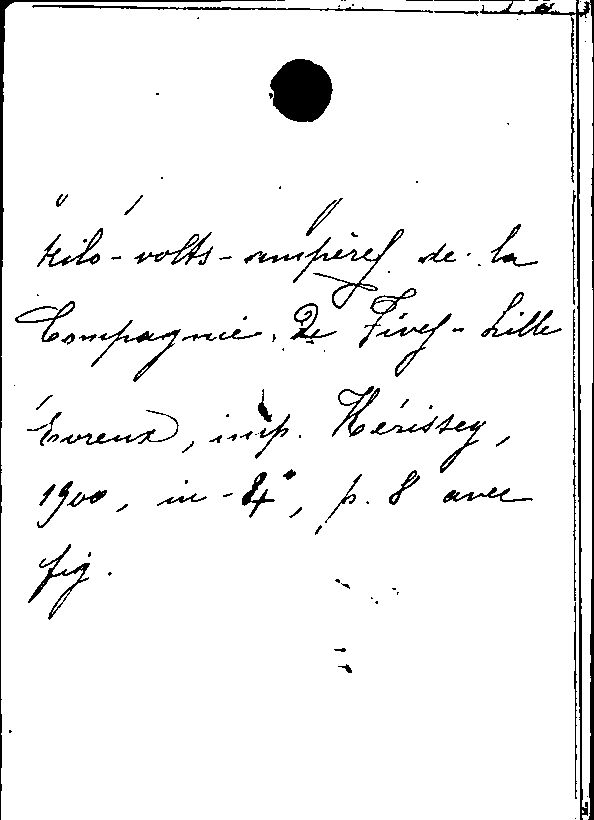 kilo-volts-ampères de la
Compagnie de Fives-Lille
Évreux, imp. Hérissey,
1900, in-4°, p. 8 avec
fig.